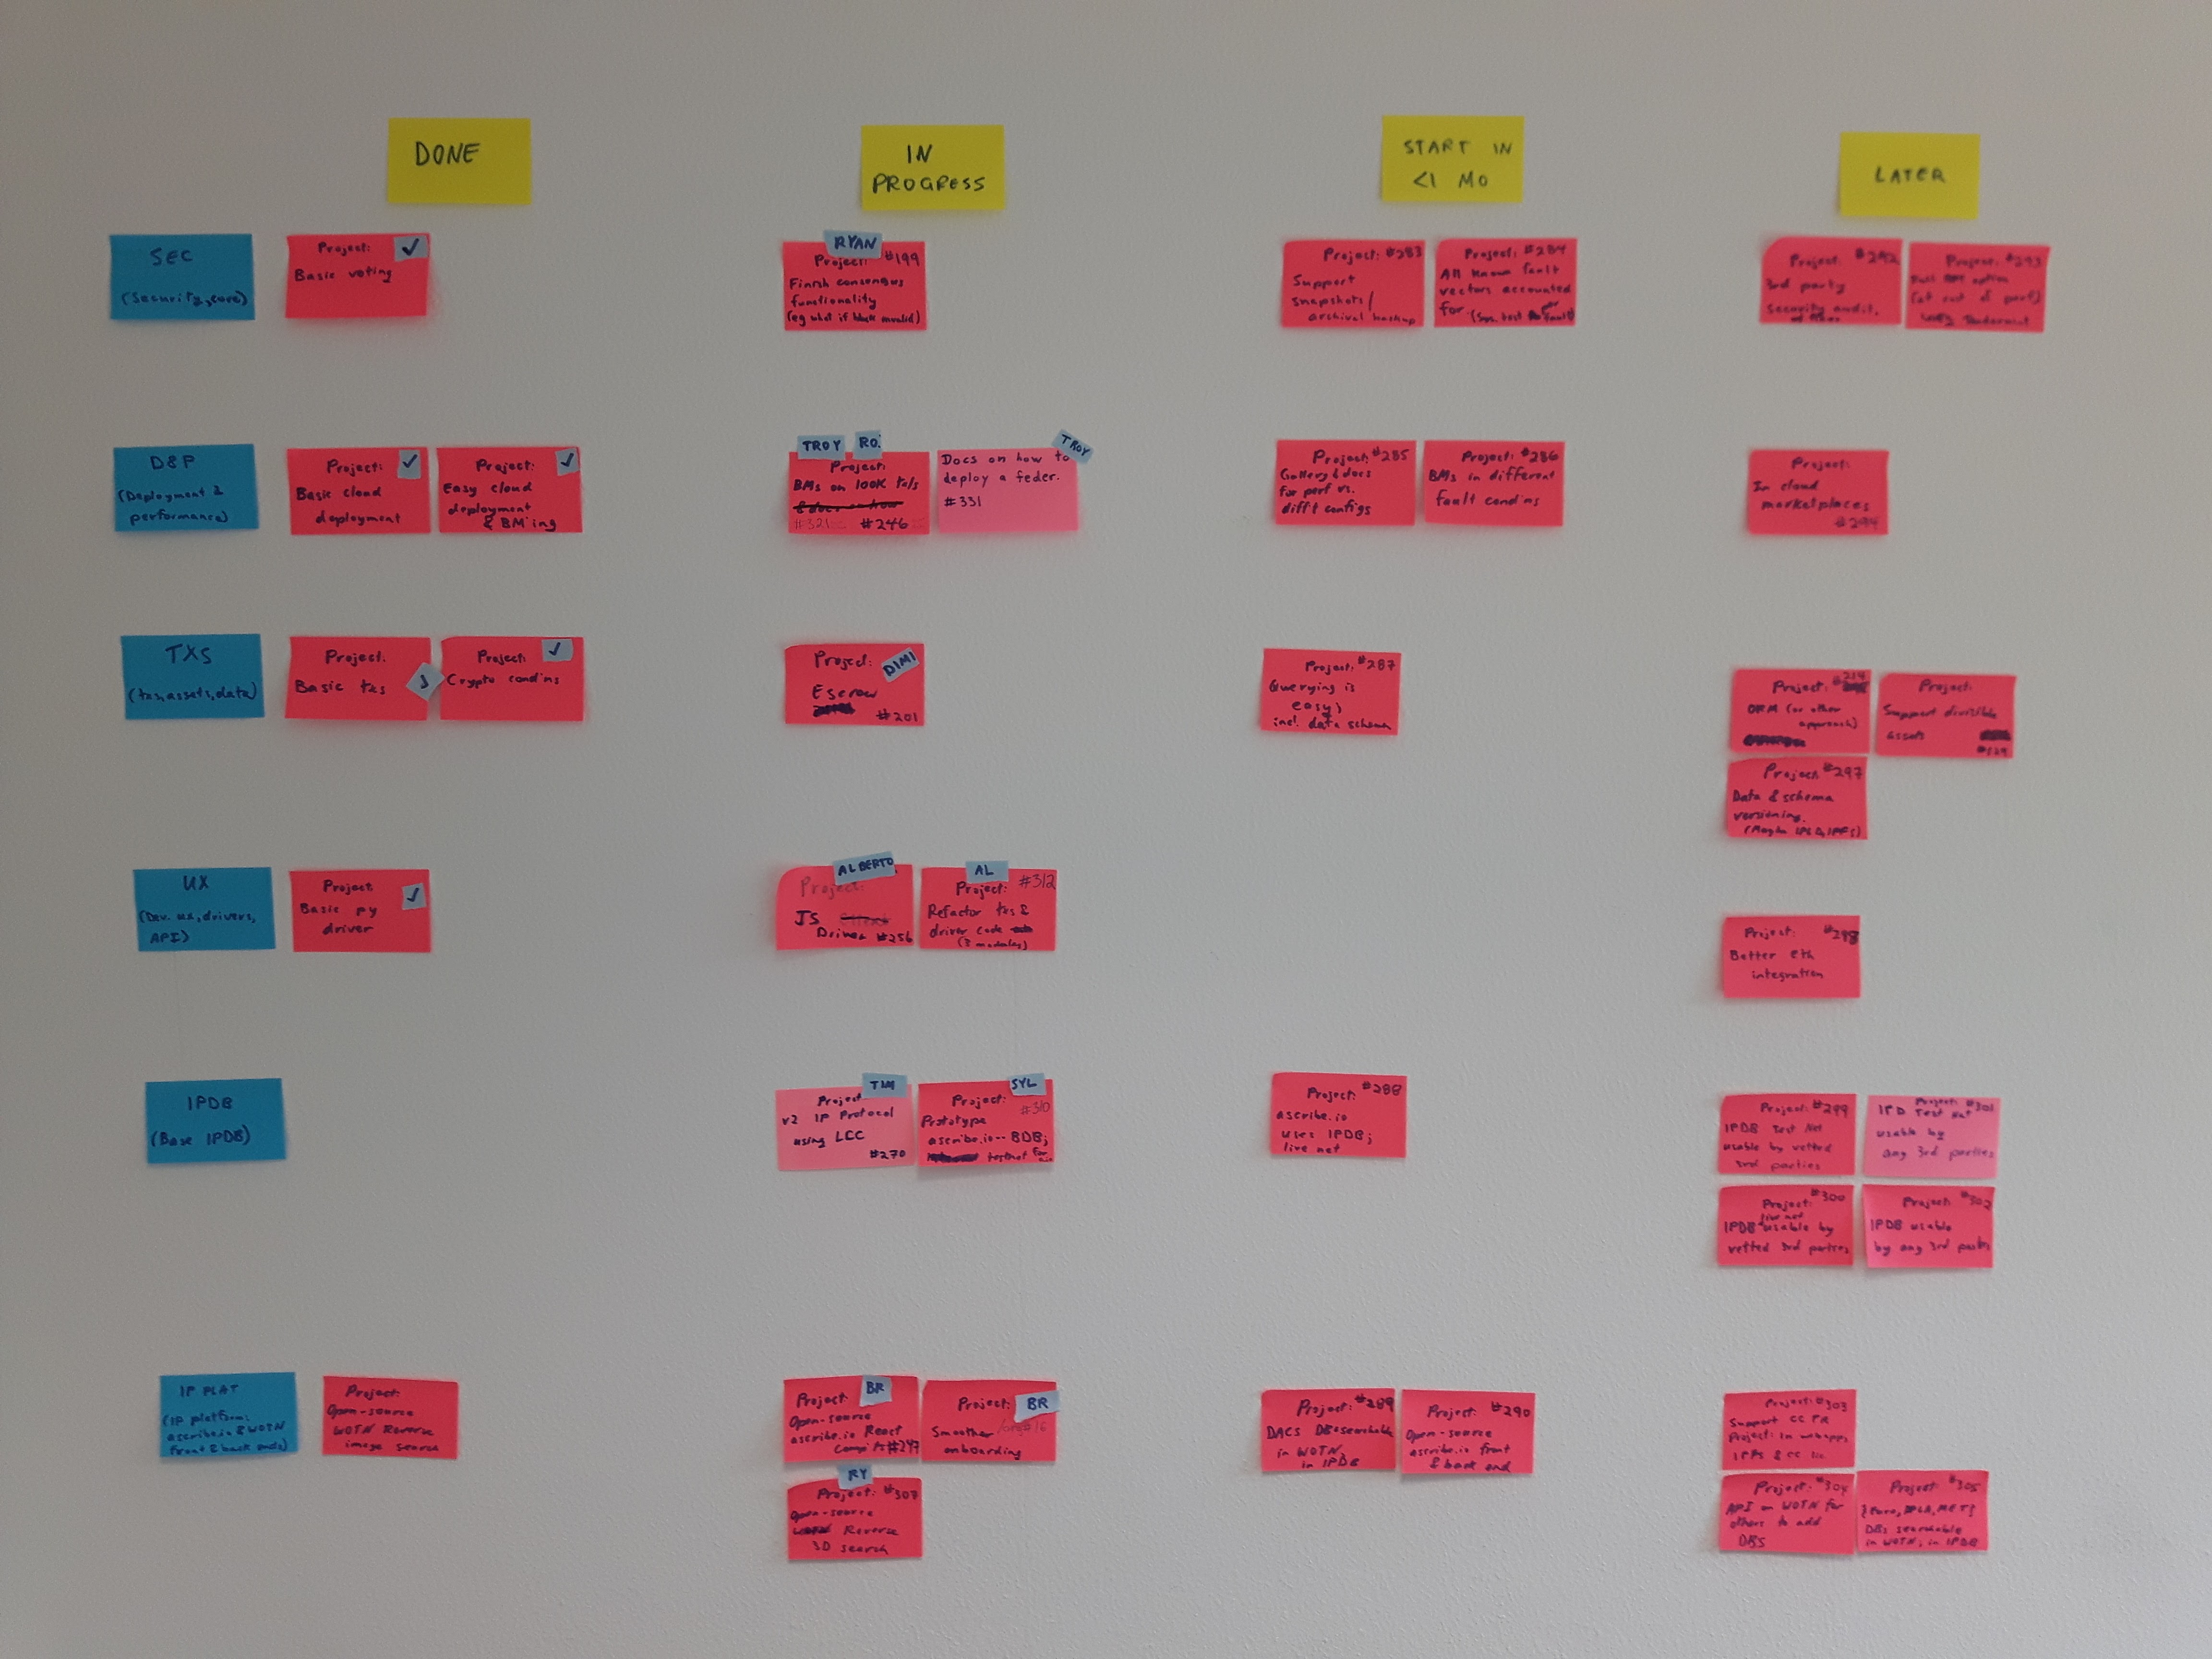 DONE
IN
PROGRESS
START IN
<1 MO
LATER
SEC
(Security, core)
Project:
✓
Basic voting
RYAN
Project: #199
Finish consensus
functionality
(eg what if block invalid)
Project: #283
Support
snapshots/
archival backup
Project: #284
All known fault
vectors accounted
for
Project: #292
3rd party
security audit,
Project: #293
D&P
(Deployment &
performance)
Project: ✓
Basic cloud
deployment
Project: ✓
Easy cloud
deployment
& BM'ing
TROY RO.
Project:
BMs on 100K tx/s
#321 #246
TROY
Docs on how to
deploy a feder.
#331
Project: #285
Gallery & docs
for perf vs.
diff't configs
Project: #286
BMs in different
fault cond'ns
Project:
In cloud
marketplaces
#294
TXS
(txn, assets, data)
Project:
Basic txs
Project: ✓
Crypto cond'ns
Project: DIMI
Escrow
#201
Project: #287
Querying is
easy;
incl. data schema
Project:
ORM (or other
approach)
Project:
Support divisible
assets
Project: #297
Data & schema
versioning.
(Maybe IPLD, IPFS)
UX
(Dev. ux, drivers,
API)
Project:
✓
Basic py
driver
ALBERTO
Project:
JS
Driver #256
AL
Project: #312
Refactor txs &
driver code
(3 modules)
Project: #298
Better eth
integration
IPDB
(Base IPDB)
TIM
Project
v2 IP Protocol
using LCC
#270
SYL
Project: #310
Prototype
ascribe.io -- BDB;
testnet for
Project: #288
ascribe.io
uses IPDB;
live net
Project: #299
IPDB Test Net
usable by vetted
3rd parties
Project: #301
IPD Test Net
usable by
any 3rd parties
Project: #300
live net
IPDB usable by
vetted 3rd parties
Project: #302
IPDB usable
by any 3rd parties
IP PLAT
(IP platform:
ascribe.io & WOTN
front & back ends)
Project:
Open-source
WOTN Reverse
image search
BR
Project:
Open-source
ascribe.io React
#247
BR
Project:
Smoother
onboarding
RY
Project: #307
Open-source
Reverse
3D search
Project: #289
DACS DB searchable
in WOTN,
in IPDB
Project: #290
Open-source
ascribe.io front
& back end
Project: #303
Support CC PR
Project: in webapps,
Project: #304
API on WOTN for
others to add
DBS
Project: #305
DBs searchable
in WOTN; in IPDB